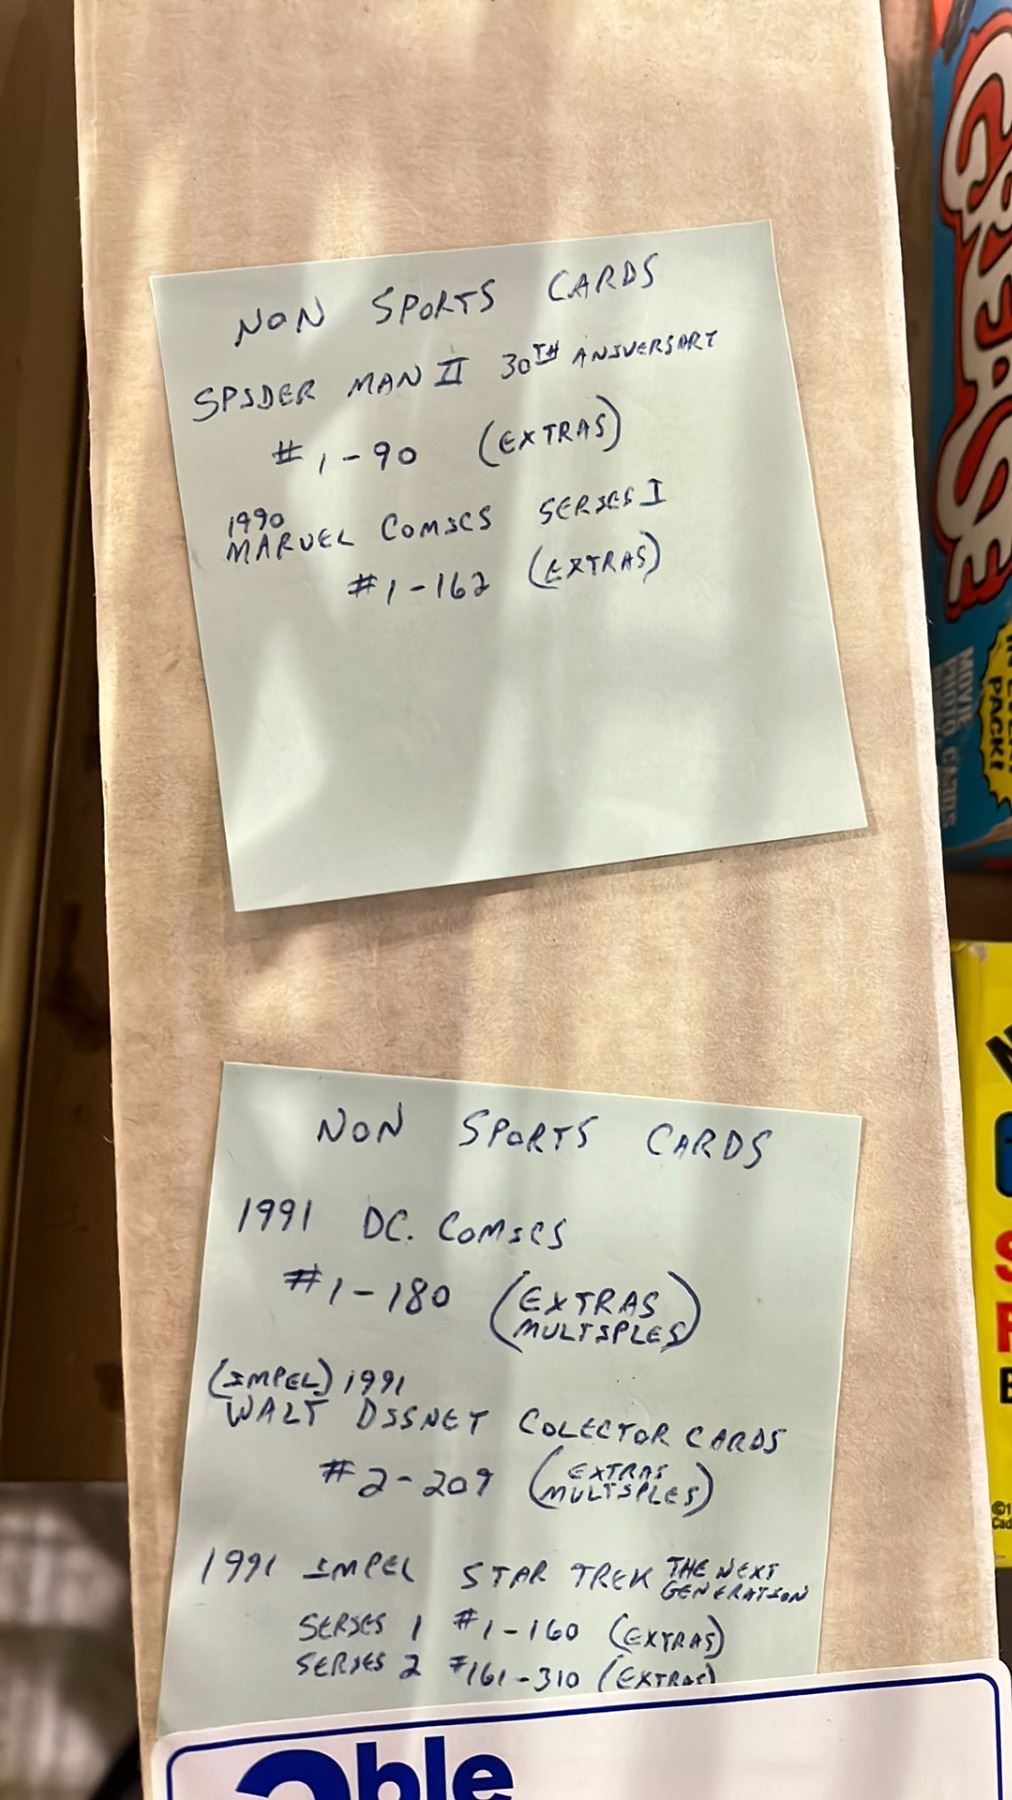 NON SPORTS CARDS
SPIDER MAN II 30TH ANIVERSARY
#1-90 (EXTRAS)
1990
MARVEL COMICS SERIES I
#1-162 (EXTRAS)
NON SPORTS CARDS
1991 DC. COMICS
#1-180 (EXTRAS
MULTIPLES)
(IMPEL) 1991
WALT DISNEY COLECTOR CARDS
#2-209 (EXTRAS
MULTIPLES)
1991 IMPEL STAR TREK THE NEXT
GENERATION
SERIES 1 #1-160 (EXTRAS)
SERIES 2 #161-310 (EXTRAS)
GREASE
PACK!
MOVIE
PHOTO CARDS